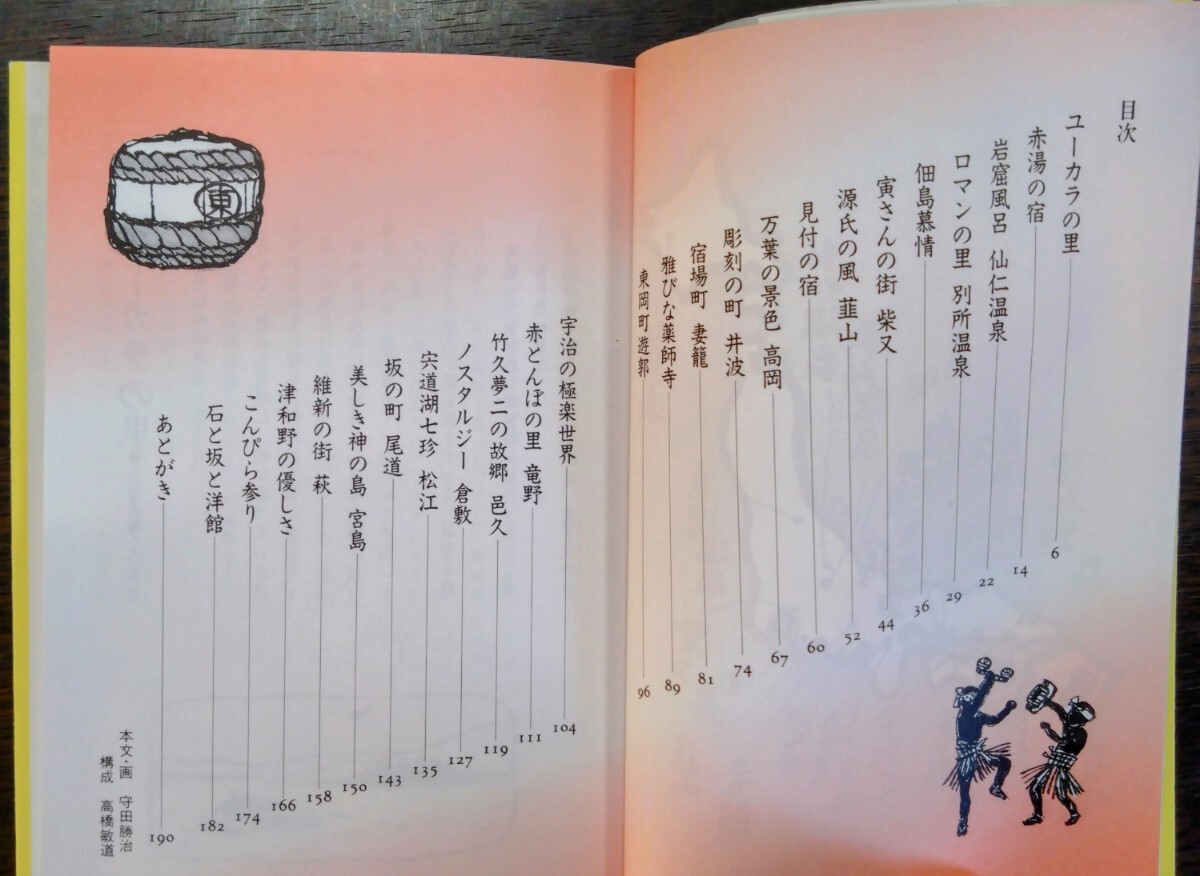 目次
ユーカラの里 6
赤湯の宿 14
岩窟風呂 仙仁温泉 22
ロマンの里 別所温泉 29
佃島慕情 36
寅さんの街 柴又 44
源氏の風 韮山 52
見付の宿 60
万葉の景色 高岡 67
彫刻の町 井波 74
宿場町 妻籠 81
雅びな薬師寺 89
東岡町遊郭 96
宇治の極楽世界 104
赤とんぼの里 竜野 111
竹久夢二の故郷 邑久 119
ノスタルジー 倉敷 127
宍道湖七珍 松江 135
坂の町 尾道 143
美しき神の島 宮島 150
維新の街 萩 158
津和野の優しさ 166
こんぴら参り 174
石と坂と洋館 182
あとがき 190
本文・画 守田勝治
構成 高橋敏道
東